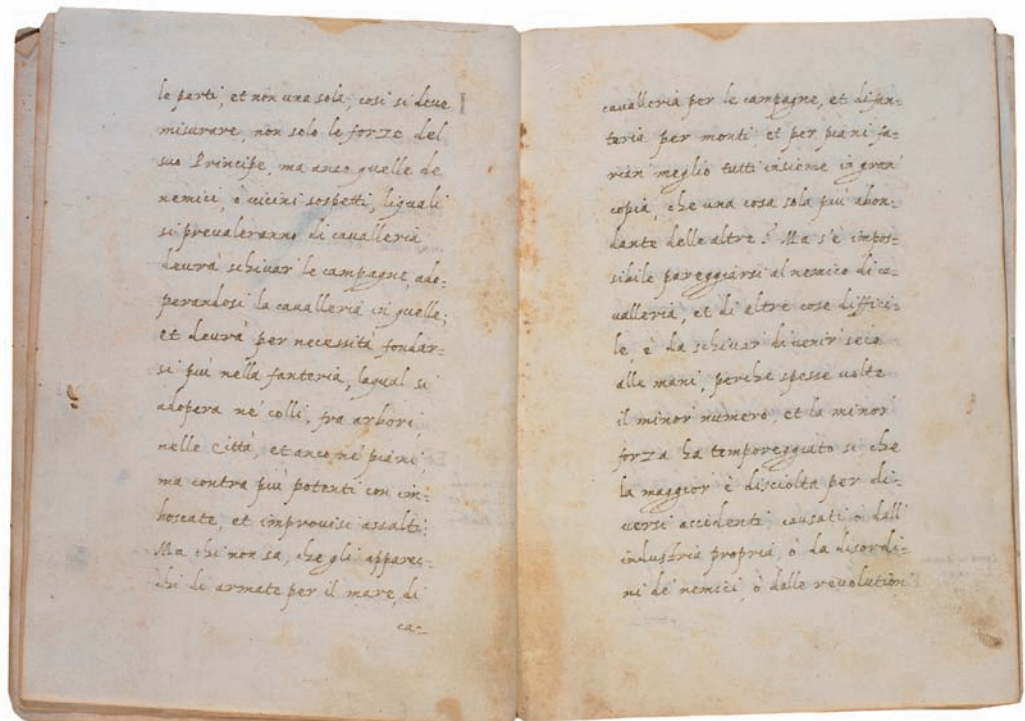 le parti, et non una sola, così si deve
misurare, non solo le forze del
suo Principe, ma anco quelle de
nemici, ò vicini sospetti, liquali
si prevaleranno di cavalleria
devrà schivar le campagne, ado:
perandosi la cavalleria in quelle;
et devrà per necessità fondar:
si più nella fanteria, laqual si
adopera ne' colli, fra arbori,
nelle Città, et anco ne' piani,
ma contra più potenti con im:
boscate, et improvisi assalti:
Ma chi non sa, che gli apparec:
chi di armate per il mare, di
ca:
cavalleria per le campagne, et di fan:
teria per monti, et per piani fa:
rian meglio tutti insieme in gran
copia, che una cosa sola più abon:
dante delle altre? Ma s'è impos:
sibile pareggiarsi al nemico di ca:
valleria, et di altre cose diffici:
le, è da schivar di venir seco
alle mani, perche spesse volte
il minor numero, et la minor
forza ha temporeggiato si che
la maggior è disciolta per di:
versi accidenti causati ò dall'
industria propria, ò da disordi:
ni de' nemici, ò dalle revolutioni